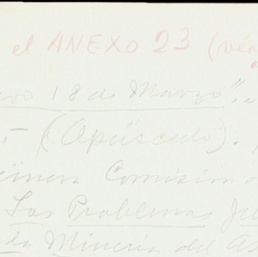 el ANEXO 23 (véa
18 de Marzo"..
.- (Opúsculo).
Comisión
Los Problemas Ju
la Minería del A